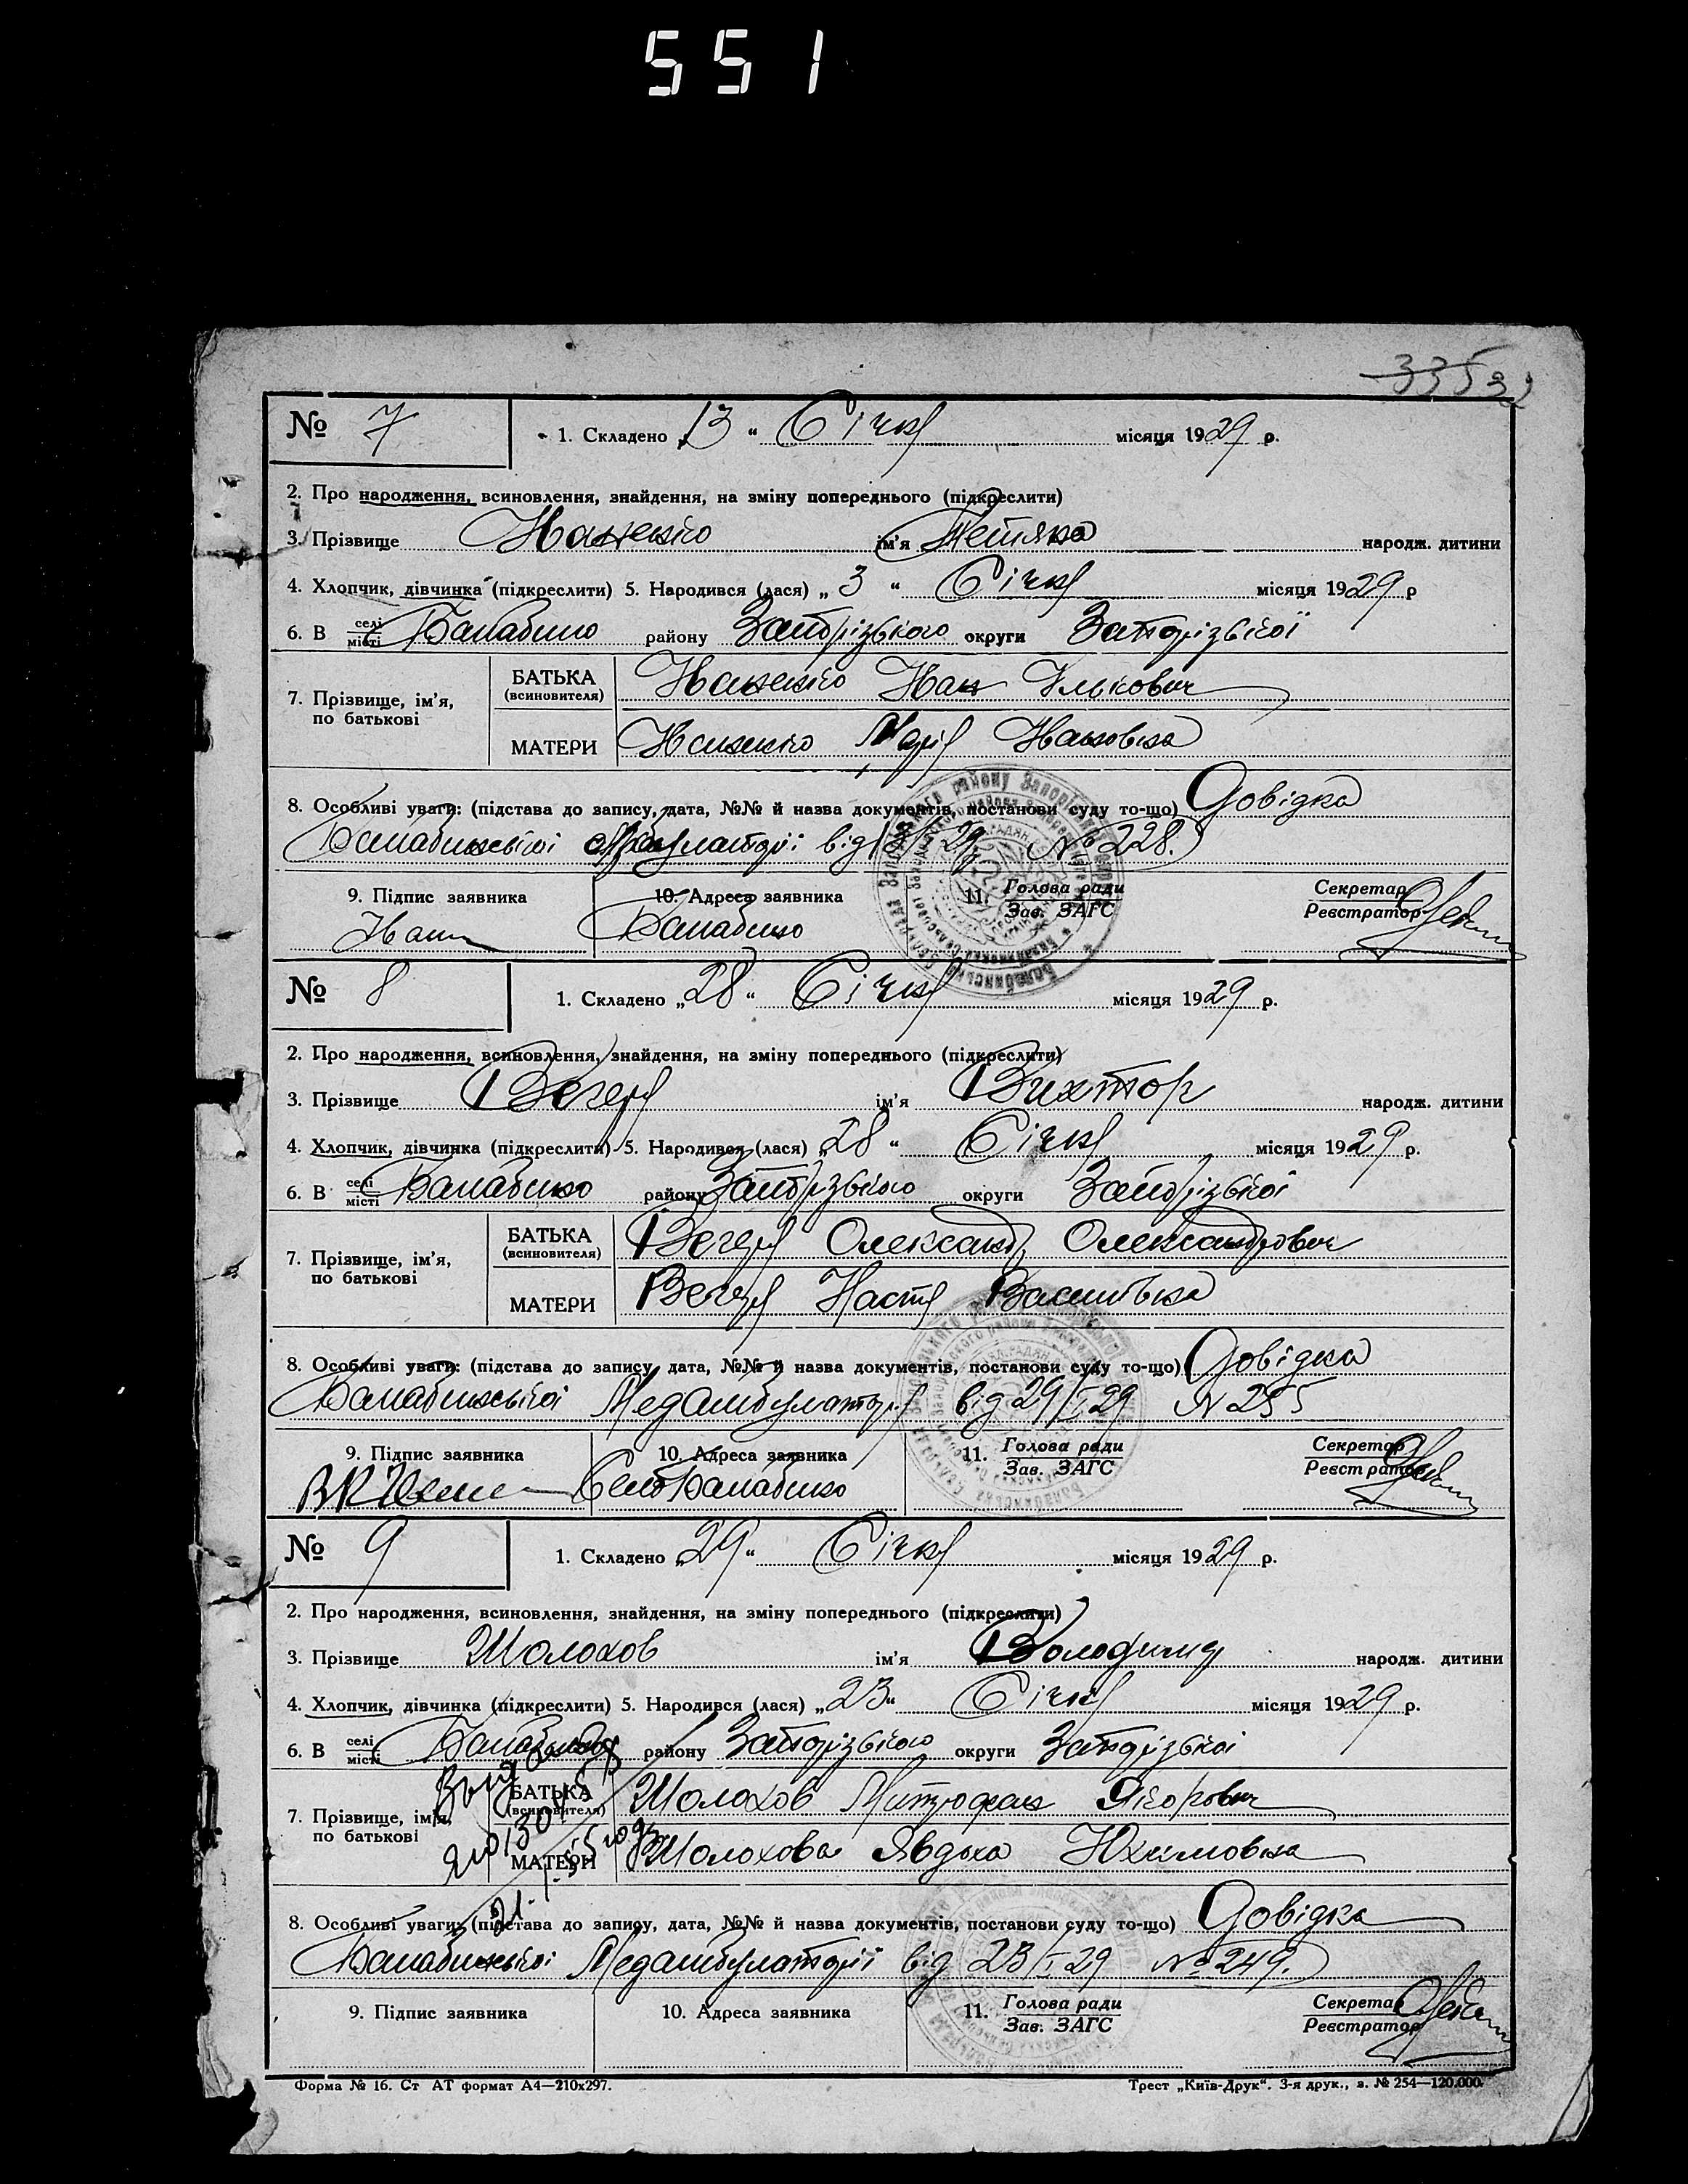 551
335 32
№ 7 1. Складено „13“ Січня місяця 1929 р.
2. Про народження, всиновлення, знайдення, на зміну попереднього (підкреслити)
3. Прізвище ім'я Тетяна народж. дитини
4. Хлопчик, дівчинка (підкреслити) 5. Народився (лася) „3“ Січня місяця 1929 р
6. В селі місті Балабино району Запорізького округи Запорізької
7. Прізвище, ім'я, по батькові
БАТЬКА (всиновителя) Іван Улькович
МАТЕРИ Марія Івановна
8. Особливі уваги: (підстава до запису, дата, №№ й назва документів, постанови суду то-що) Довідка
Балабинської Амбулаторії від 29 № 228.
9. Підпис заявника 10. Адреса заявника 11. Голова ради Секретар
Зав. ЗАГС Реєстратор
Балабино
№ 8 1. Складено „28“ Січня місяця 1929 р.
2. Про народження, всиновлення, знайдення, на зміну попереднього (підкреслити)
3. Прізвище Вечеря ім'я Вихтор народж. дитини
4. Хлопчик, дівчинка (підкреслити) 5. Народився (лася) „28“ Січня місяця 1929 р.
6. В селі місті Балабино району Запорізького округи Запорізької
7. Прізвище, ім'я, по батькові
БАТЬКА (всиновителя) Вечеря Олександр Олександрович
МАТЕРИ Вечеря Настя Василівна
8. Особливі уваги: (підстава до запису, дата, №№ й назва документів, постанови суду то-що) Довідка
Балабинської Медамбулаторії від 29/I 29 N 255
9. Підпис заявника 10. Адреса заявника 11. Голова ради Секретар
Зав. ЗАГС Реєстратор
Село Балабино
№ 9 1. Складено „29“ Січня місяця 1929 р.
2. Про народження, всиновлення, знайдення, на зміну попереднього (підкреслити)
3. Прізвище Шолохов ім'я Володимир народж. дитини
4. Хлопчик, дівчинка (підкреслити) 5. Народився (лася) „23“ Січня місяця 1929 р.
6. В селі місті Балабино району Запорізького округи Запорізької
7. Прізвище, ім'я, по батькові
БАТЬКА (всиновителя) Шолохов Митрофан Якович
МАТЕРИ Шолохова Явдоха Юхимовна
8. Особливі уваги: (підстава до запису, дата, №№ й назва документів, постанови суду то-що) Довідка
Балабинської Медамбулаторії від 23/I 29 № 249.
9. Підпис заявника 10. Адреса заявника 11. Голова ради Секретар
Зав. ЗАГС Реєстратор
Форма № 16. Ст АТ формат А4—210x297. Трест „Київ-Друк“. 3-я друк., з. № 254—120.000.